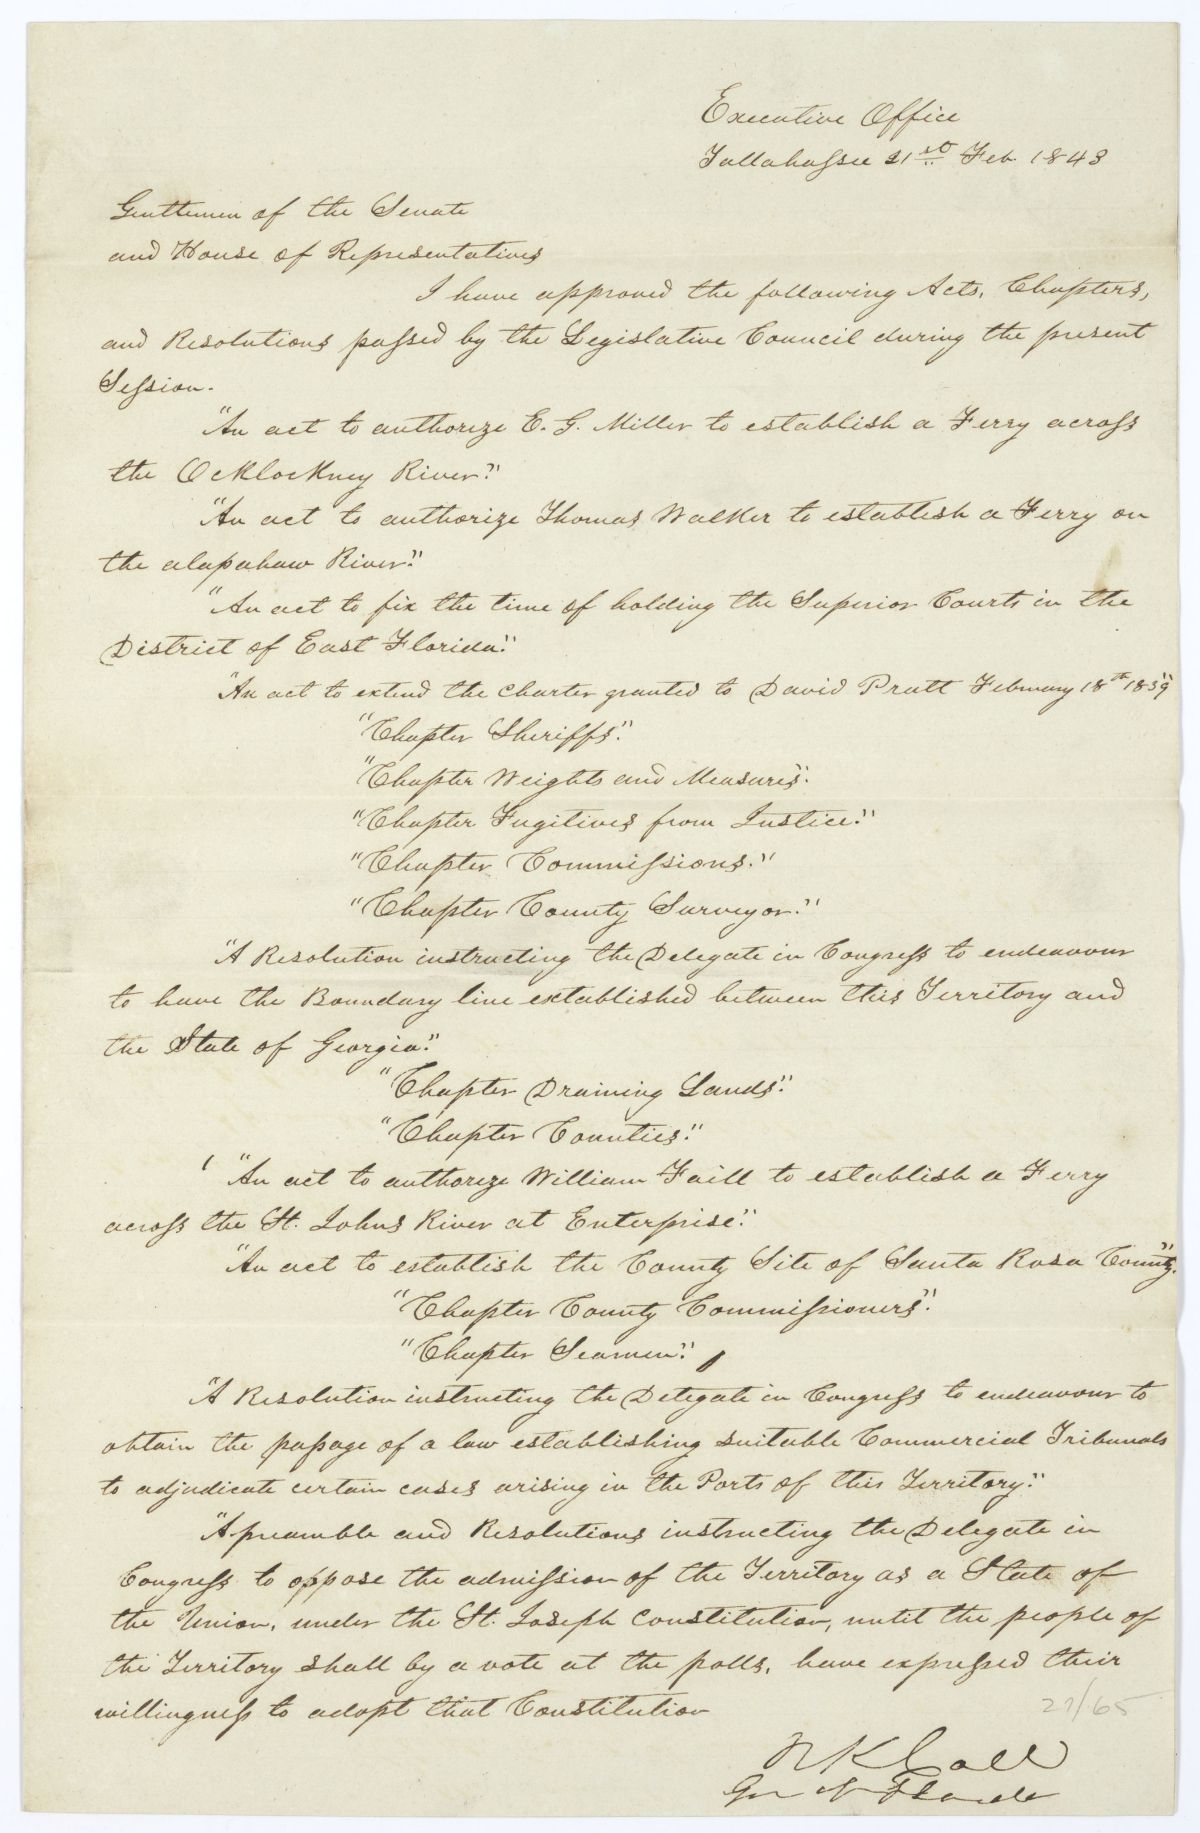 Executive Office
Tallahassee 21st Feb. 1843
Gentlemen of the Senate
and House of Representatives
I have approved the following Acts, Chapters,
and Resolutions passed by the Legislative Council during the present
Session.
"An act to authorize E. G. Miller to establish a Ferry across
the Ocklockney River."
"An act to authorize Thomas Walker to establish a Ferry on
the alapahaw River."
"An act to fix the time of holding the Superior Courts in the
District of East Florida."
"An act to extend the charter granted to David Pratt February 18th 1839"
"Chapter Sheriffs."
"Chapter Weights and Measures."
"Chapter Fugitives from Justice."
"Chapter Commissions."
"Chapter County Surveyor."
"A Resolution instructing the Delegate in Congress to endeavour
to have the Boundary line extablished between this Territory and
the State of Georgia."
"Chapter Draining Lands."
"Chapter Counties."
"An act to authorize William Faill to establish a Ferry
across the St. Johns River at Enterprise."
"An act to establish the County Site of Santa Rosa County."
"Chapter County Commissioners."
"Chapter Seamen."
"A Resolution instructing the Delegate in Congress to endeavour to
obtain the passage of a law establishing suitable Commercial Tribunals
to adjudicate certain cases arising in the Ports of this Territory."
"A preamble and Resolutions instructing the Delegate in
Congress to oppose the admission of the Territory as a State of
the Union, under the St. Joseph Constitution, until the people of
the Territory shall by a vote at the polls, have expressed their
willingness to adopt that Constitution
27/65
R K Call
Gov of Florida